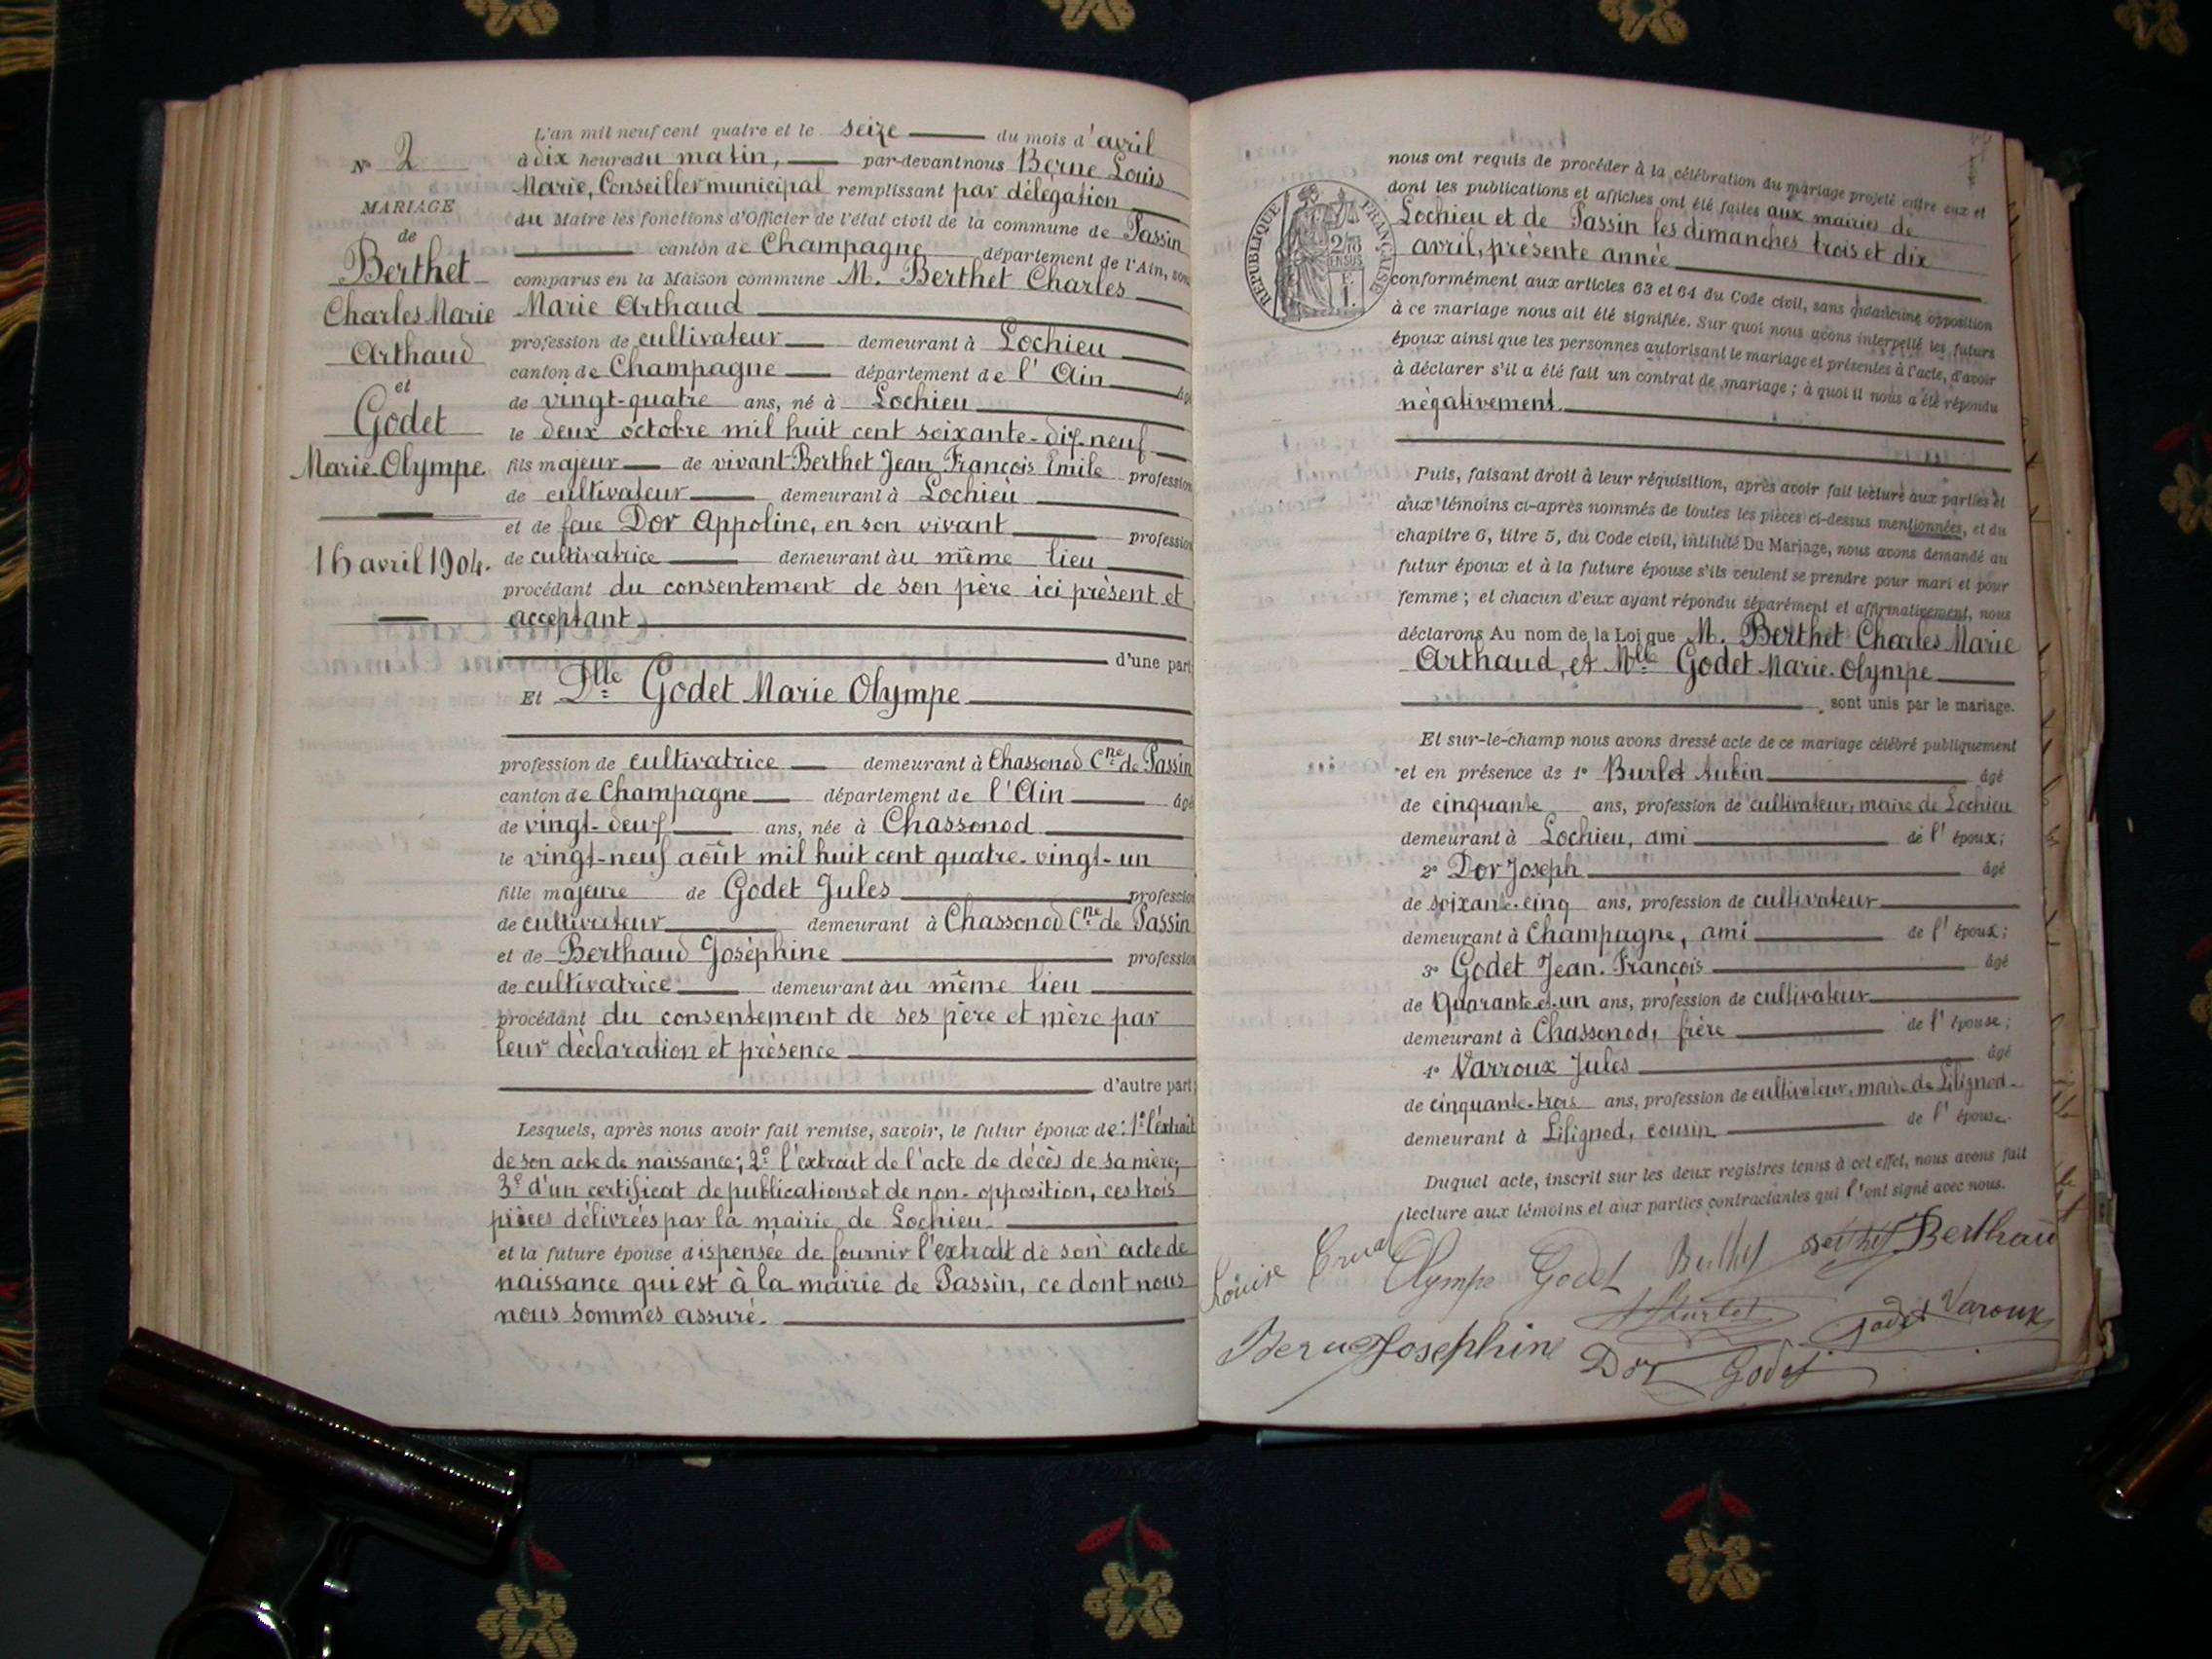 N° 2
MARIAGE
de
Berthet
Charles Marie
Arthaud
et
Godet
Marie Olympe
16 avril 1904.
L'an mil neuf cent quatre et le seize du mois d'avril
à dix heures du matin, par-devant nous Berne Louis
Marie, Conseiller municipal remplissant par délégation
du Maire les fonctions d'Officier de l'état civil de la commune de Passin
canton de Champagne département de l'Ain, sont
comparus en la Maison commune M. Berthet Charles
Marie Arthaud
profession de cultivateur demeurant à Lochieu
canton de Champagne département de l'Ain âgé
de vingt-quatre ans, né à Lochieu
le deux octobre mil huit cent soixante-dix-neuf
fils majeur de vivant Berthet Jean François Emile profession
de cultivateur demeurant à Lochieu
et de feue Dor Appoline, en son vivant profession
de cultivatrice demeurant au même lieu
procédant du consentement de son père ici présent et
acceptant
d'une part
Et Dlle Godet Marie Olympe
profession de cultivatrice demeurant à Chassonod Cne de Passin
canton de Champagne département de l'Ain âgé
de vingt-deux ans, née à Chassonod
le vingt-neuf août mil huit cent quatre-vingt-un
fille majeure de Godet Jules profession
de cultivateur demeurant à Chassonod Cne de Passin
et de Berthaud Joséphine profession
de cultivatrice demeurant au même lieu
procédant du consentement de ses père et mère par
leur déclaration et présence
d'autre part;
Lesquels, après nous avoir fait remise, savoir, le futur époux de: 1° l'extrait
de son acte de naissance; 2° l'extrait de l'acte de décès de sa mère;
3° d'un certificat de publications et de non-opposition, ces trois
pièces délivrées par la mairie de Lochieu.
et la future épouse dispensée de fournir l'extrait de son acte de
naissance qui est à la mairie de Passin, ce dont nous
nous sommes assuré.
REPUBLIQUE FRANÇAISE
2/10
EN SUS
F.
1.
nous ont requis de procéder à la célébration du mariage projeté entre eux et
dont les publications et affiches ont été faites aux mairies de
Lochieu et de Passin les dimanches trois et dix
avril, présente année
conformément aux articles 63 et 64 du Code civil, sans qu'aucune opposition
à ce mariage nous ait été signifiée. Sur quoi nous avons interpellé les futurs
époux ainsi que les personnes autorisant le mariage et présentes à l'acte, d'avoir
à déclarer s'il a été fait un contrat de mariage; à quoi il nous a été répondu
négativement.
Puis, faisant droit à leur réquisition, après avoir fait lecture aux parties et
aux témoins ci-après nommés de toutes les pièces ci-dessus mentionnées, et du
chapitre 6, titre 5, du Code civil, intitulé Du Mariage, nous avons demandé au
futur époux et à la future épouse s'ils veulent se prendre pour mari et pour
femme; et chacun d'eux ayant répondu séparément et affirmativement, nous
déclarons Au nom de la Loi que M. Berthet Charles Marie
Arthaud, et Mlle Godet Marie-Olympe
sont unis par le mariage.
Et sur-le-champ nous avons dressé acte de ce mariage célébré publiquement
et en présence de 1° Burlet Aubin âgé
de cinquante ans, profession de cultivateur, maire de Lochieu
demeurant à Lochieu, ami de l'époux;
2° Dor Joseph âgé
de soixante-cinq ans, profession de cultivateur
demeurant à Champagne, ami de l'époux;
3° Godet Jean-François âgé
de Quarante-et-un ans, profession de cultivateur
demeurant à Chassonod, frère de l'épouse;
4° Varroux Jules âgé
de cinquante-trois ans, profession de cultivateur, maire de Lilignod
demeurant à Lilignod, cousin de l'épouse.
Duquel acte, inscrit sur les deux registres tenus à cet effet, nous avons fait
lecture aux témoins et aux parties contractantes qui l'ont signé avec nous.
Louise Olympe Godet Berthet Berthet Berthaud
Burlet Godet Varoux
Berne Josephine Dor Godet